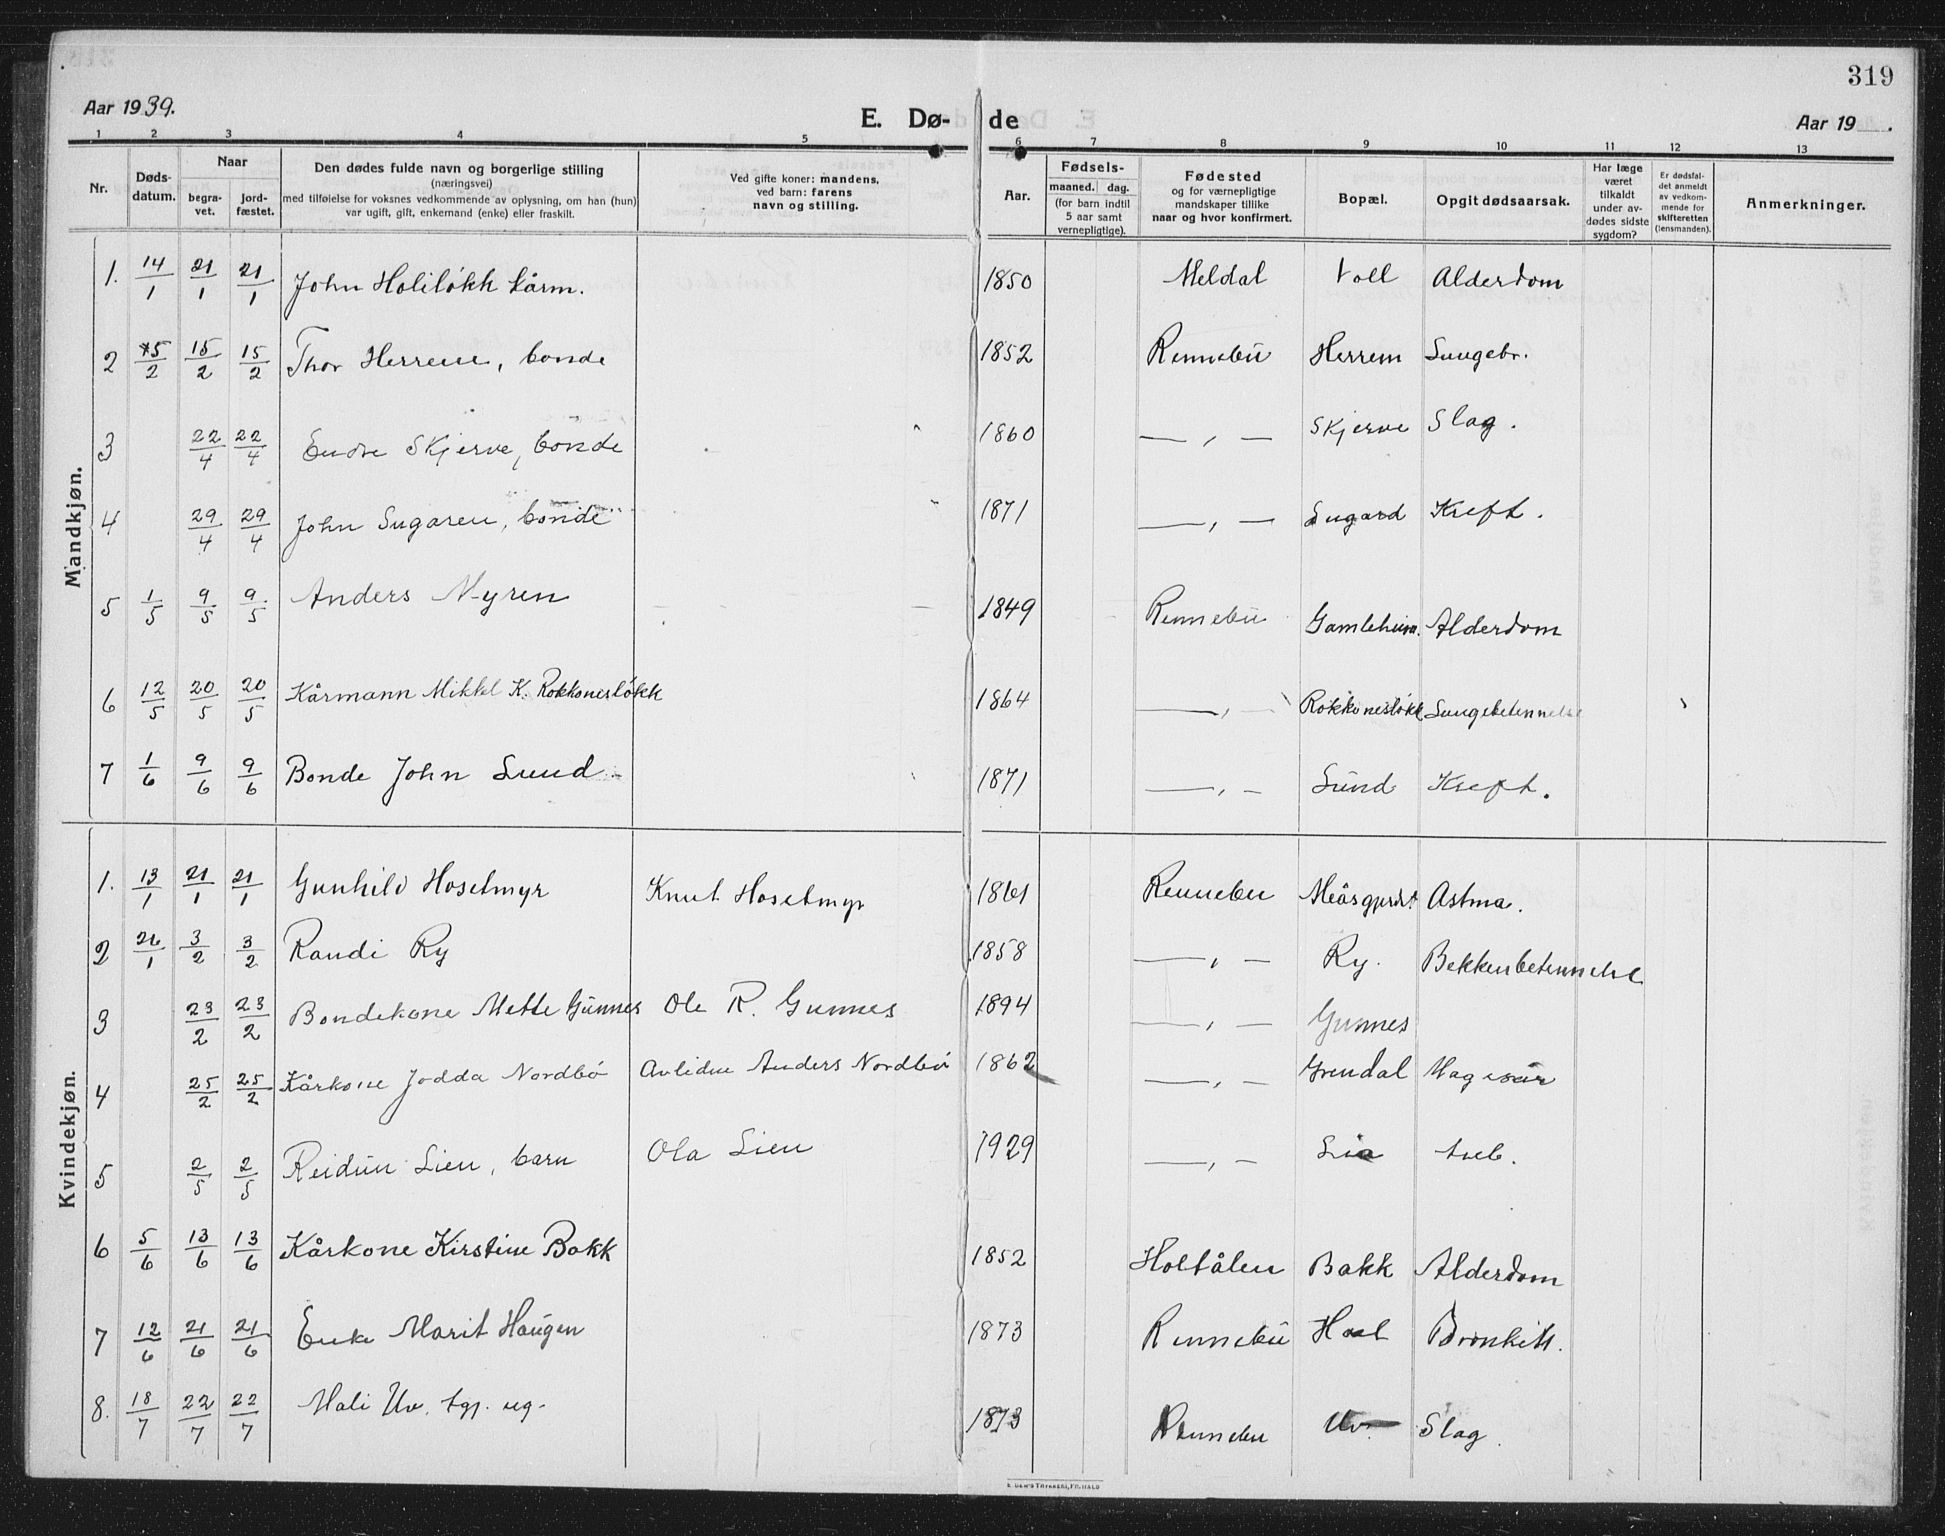 319
Aar 1939.
E. Dø- de
Aar 19 .
1 2 3 4 5 6 7 8 9 10 11 12 13
Nr.
Døds-
datum.
Naar
begra-
vet.
jord-
fæstet.
Den dødes fulde navn og borgerlige stilling
(næringsvei)
med tilføielse for voksnes vedkommende av oplysning, om han (hun)
var ugift, gift, enkemand (enke) eller fraskilt.
Ved gifte koner: mandens,
ved barn: farens
navn og stilling.
Aar.
Fødsels-
maaned. dag.
(for barn indtil
5 aar samt
vernepligtige).
Fødested
og for værnepligtige
mandskaper tillike
naar og hvor konfirmert.
Bopæl.
Opgit dødsaarsak.
Har læge
været
tilkaldt
under av-
dødes sidste
sygdom?
Er dødsfal-
det anmeldt
av vedkom-
mende for
skifteretten
(lensmanden).
Anmerkninger.
Mandkjøn.
1. 14/1 21/1 21/1 John Holiløkk kårm. 1850 Meldal Voll Alderdom
2 5/2 15/2 15/2 Thor Herrem, bonde 1852 Rennebu Herrem Lungebr.
3 22/4 22/4 Endre Skjerve, bonde 1860 — „ — Skjerve Slag.
4 29/4 29/4 John Sugaren, bonde 1871 — „ — Sugard Kreft.
5 1/5 9/5 9/5 Anders Myren 1849 Rennebu Gamleheim. Alderdom
6 12/5 20/5 20/5 Kårmann Mikkel K. Rokkonesløkk 1864 — „ — Rokkonesløkk Lungebetennelse
7 1/6 9/6 9/6 Bonde John Lund 1871 — „ — Lund Kreft.
Kvindekjøn.
1. 13/1 21/1 21/1 Gunhild Hosetmyr Knut Hosetmyr 1861 Rennebu Astma.
2 26/1 3/2 3/2 Randi Ry 1858 — „ — Ry. Bekkenbetennelse
3 23/2 23/2 Bondekone Mette Gunnes Ole R. Gunnes 1894 — „ — Gunnes
4 25/2 25/2 Kårkone Jodda Nordbø Avlidne Anders Nordbø 1862 — „ — Grindal Magesår
5 2/5 2/5 Reidun Lien, barn Ola Lien 1929 — „ — Lia tub.
6 5/6 13/6 13/6 Kårkone Kirstine Bakk 1852 Holtålen Bakk Alderdom
7 12/6 21/6 21/6 Enke Marit Haugen 1873 Rennebu Hoel Bronkitt.
8. 18/7 22/7 22/7 Mali Uv, tgj. ug. 1873 Rennebu Uv. Slag.